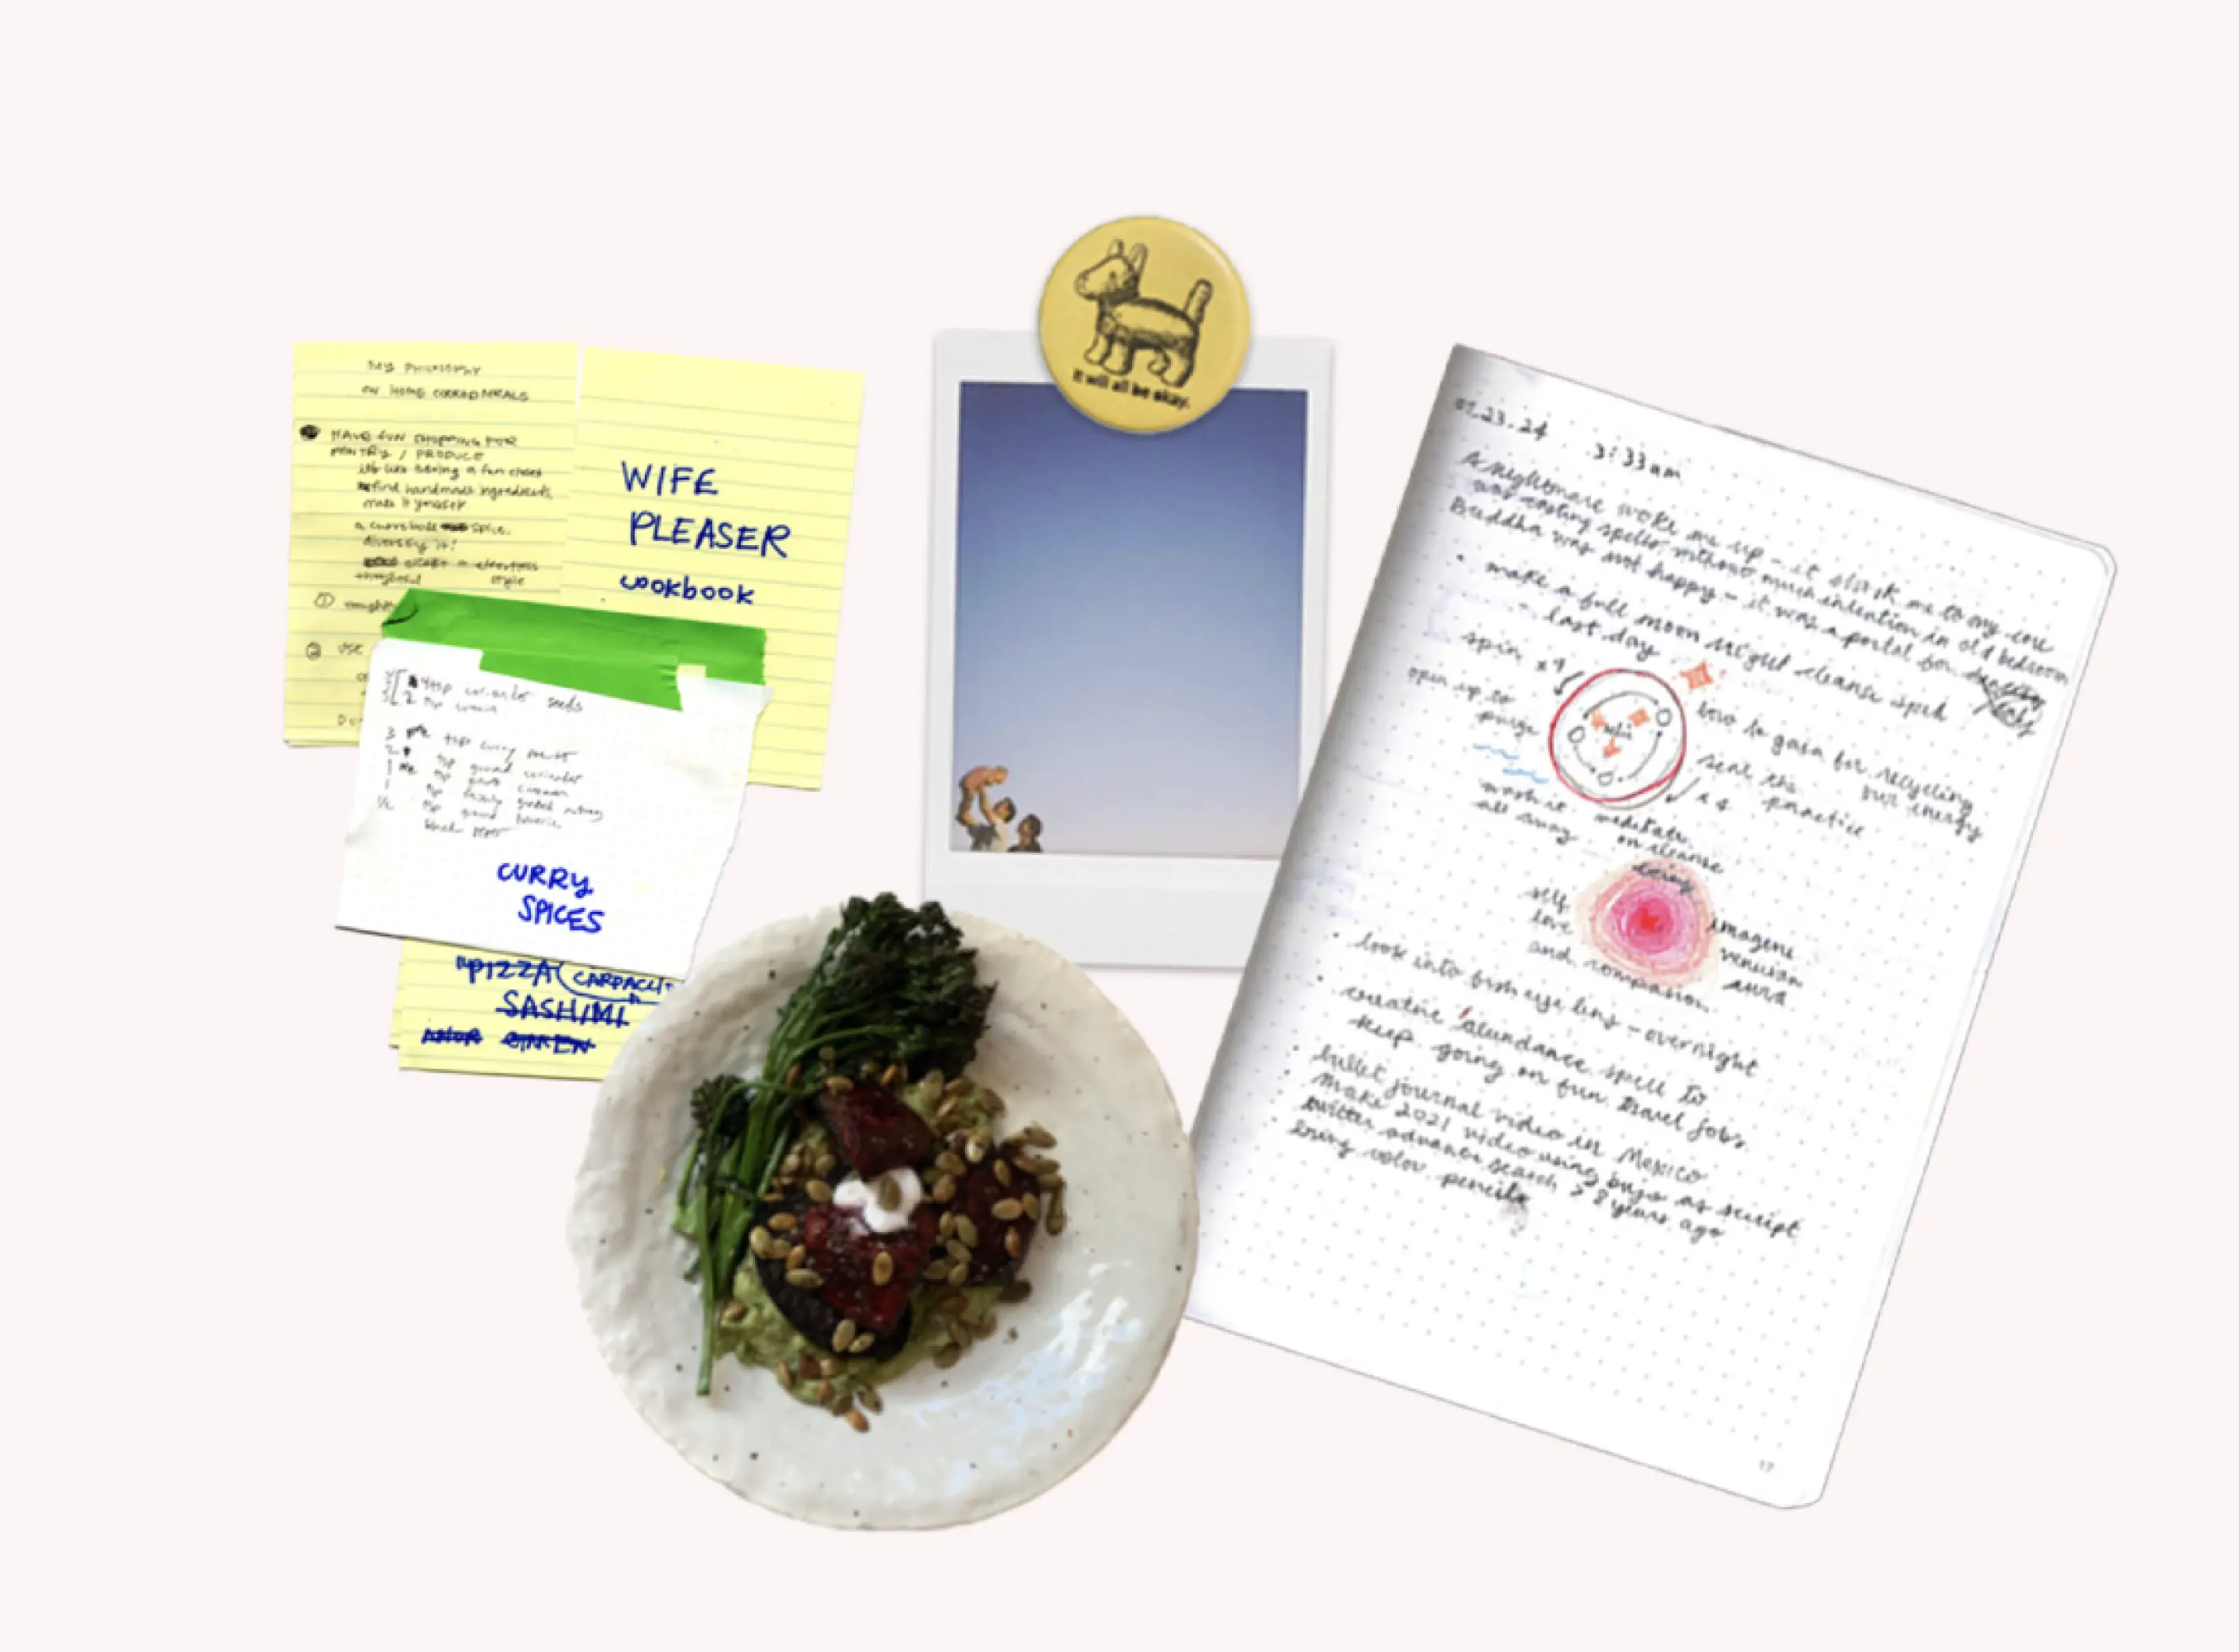 MY PHILOSOPHY
ON HOME COOKED MEALS
HAVE FUN SHOPPING FOR
PANTRY / PRODUCE
it's like having a fun closet
find handmade ingredients,
make it yourself
spice.
diversify it!
style
①
② USE
WIFE
PLEASER
cookbook
4 tsp coriander seeds
2 tsp cumin
3 tsp curry
2 tsp ground coriander
1 tsp
1 tsp freshly grated nutmeg
1/2 tsp ground
black pepper
CURRY
SPICES
PIZZA CARPACC
SASHIMI
It will all be okay.
.23.24 3:33am
A nightmare woke me up - it shook me to my core
was casting spells without much intention in old bedroom
Buddha was not happy - it was a portal for
• make a full moon night cleanse spell
- last day
spin x 9
open up to
purge
bow to gaia for recycling
our energy
seal the
practice
x 9
wash it
all away
meditate
on cleanse
being
self
love
and compassion
imagine
venusian
aura
• look into fish eye lens - overnight
• creative abundance spell to
keep going on fun travel jobs
• bullet journal video in Mexico
make 2021 video using bujo as script
• twitter advance search > 8 years ago
• bring color pencils
17